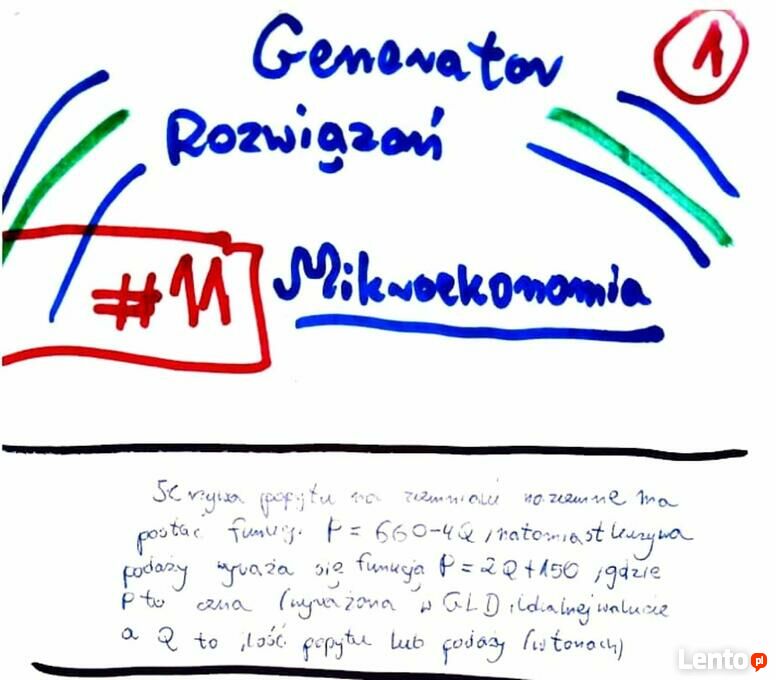 Generator
1
Rozwiązań
#11
Mikroekonomia
Krzywa popytu na ziemniaki naziemne ma
postać funkcji P = 660-4Q, natomiast krzywa
podaży wyraża się funkcją P = 2Q+150, gdzie
P to cena (wyrażona w GLD, lokalnej walucie
a Q to ilość popytu lub podaży (w tonach)
Lento.pl